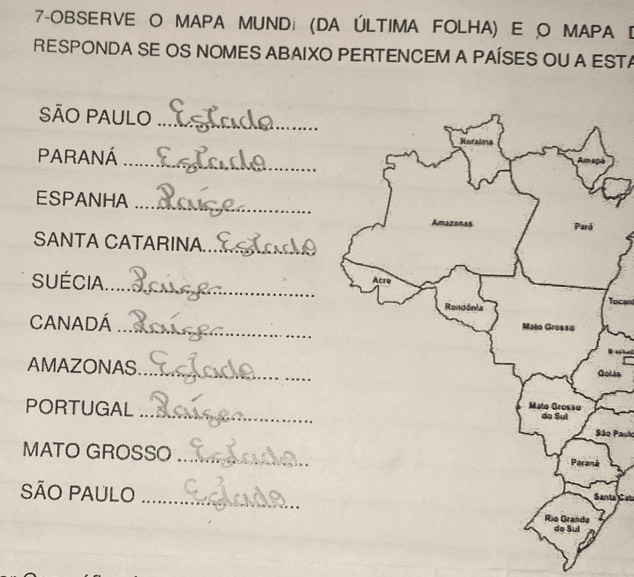 7-OBSERVE O MAPA MUNDI (DA ÚLTIMA FOLHA) E O MAPA
RESPONDA SE OS NOMES ABAIXO PERTENCEM A PAÍSES OU A ESTA
SÃO PAULO ... Estado
PARANÁ ... Estado
ESPANHA ... País
SANTA CATARINA... Estado
SUÉCIA... País
CANADÁ ... País
AMAZONAS... Estado
PORTUGAL ... País
MATO GROSSO ... Estado
SÃO PAULO ... Estado
Roraima
Amapá
Amazonas
Pará
Acre
Rondônia
Tocan
Mato Grosso
Goiás
Mato Grosso
do Sul
São Paulo
Paraná
Santa Cat
Rio Grande
do Sul